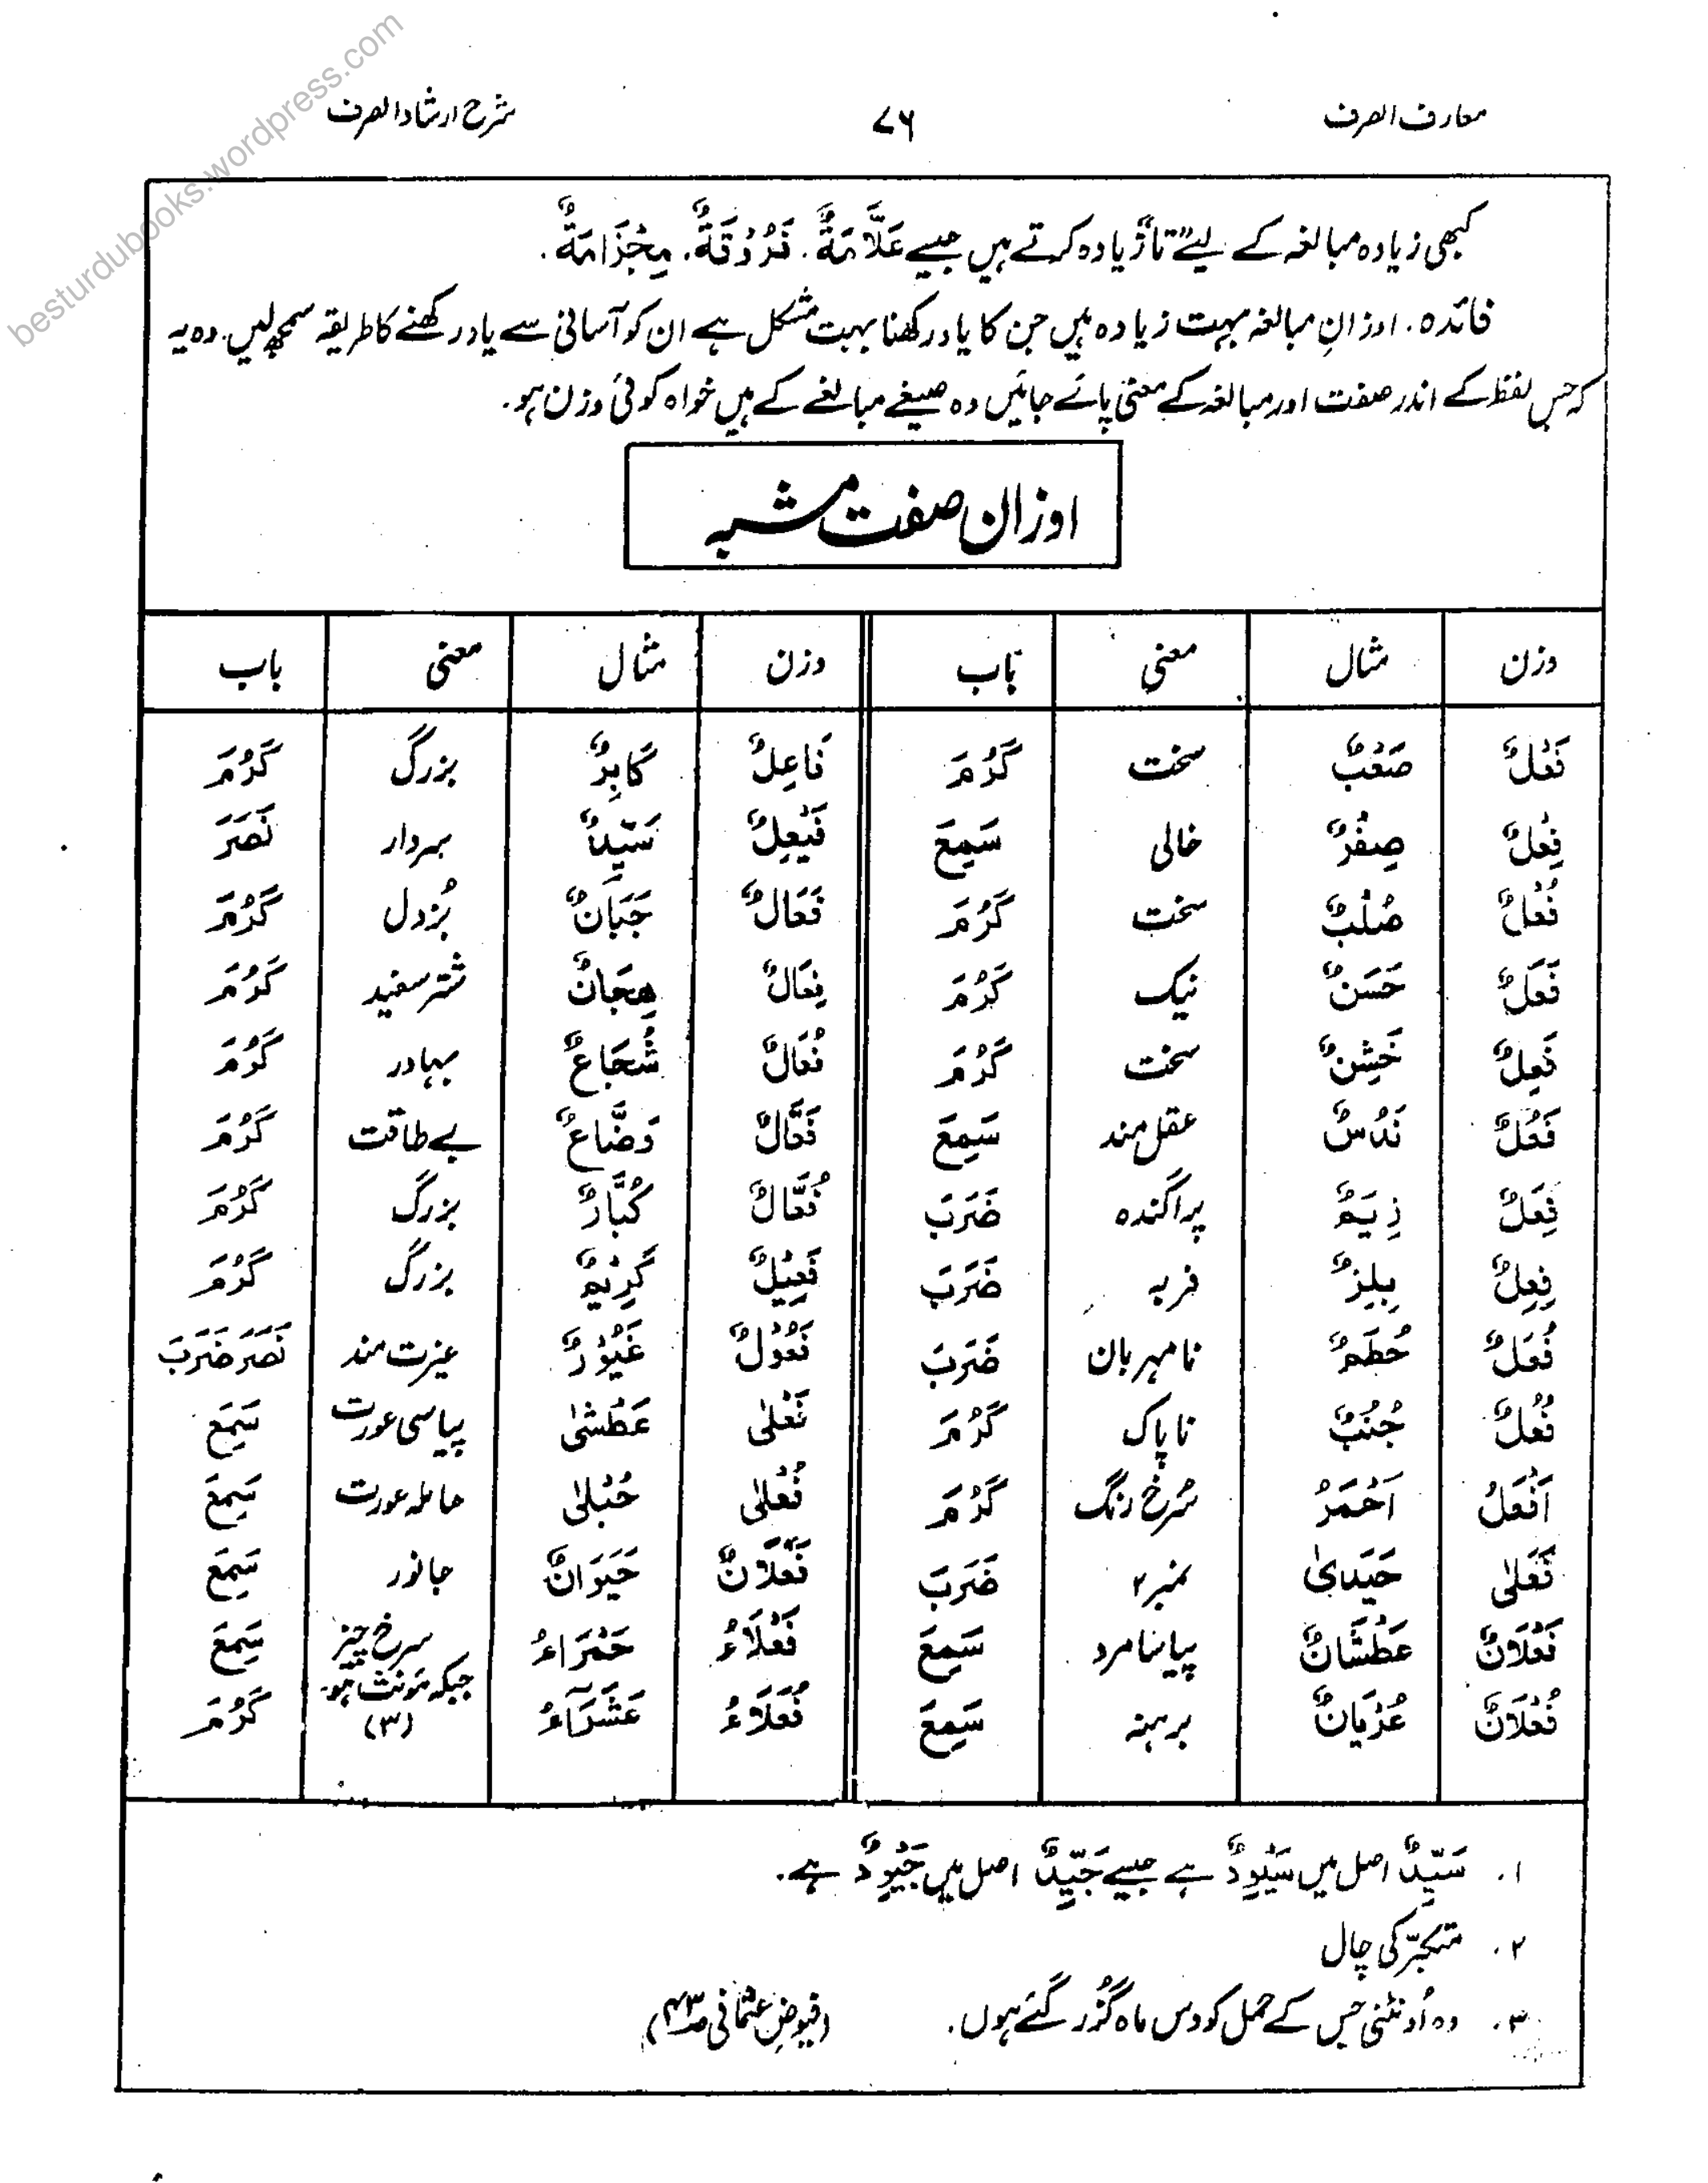 معارف الصرف ۷۶ شرح ارشاد الصرف
کبھی زیادہ مبالغہ کے لیے "تا" زیادہ کرتے ہیں جیسے عَلَّامَةٌ. فَرُوْقَةٌ. مِجْزَامَةٌ.
فائدہ. اوزانِ مبالغہ بہت زیادہ ہیں جن کا یاد رکھنا بہت مشکل ہے ان کو آسانی سے یاد رکھنے کا طریقہ سمجھ لیں. وہ یہ
کہ جس لفظ کے اندر صفت اور مبالغہ کے معنی پائے جائیں وہ صیغے مبالغے کے ہیں خواہ کوئی وزن ہو.
اوزان صفت مشبہ
وزن مثال معنی باب وزن مثال معنی باب
فَعْلٌ صَعْبٌ سخت كَرُمَ فَاعِلٌ كَابِرٌ بزرگ كَرُمَ
فِعْلٌ صِفْرٌ خالی سَمِعَ فَيْعِلٌ سَيِّدٌ سردار نَصَرَ
فُعْلٌ صُلْبٌ سخت كَرُمَ فَعَالٌ جَبَانٌ بُزدل كَرُمَ
فَعَلٌ حَسَنٌ نیک كَرُمَ فِعَالٌ هِجَانٌ شتر سفید كَرُمَ
فَعِلٌ خَشِنٌ سخت كَرُمَ فُعَالٌ شُجَاعٌ بہادر كَرُمَ
فَعُلٌ نَدُسٌ عقل مند سَمِعَ فَعَّالٌ وَضَّاعٌ بے طاقت كَرُمَ
فِعَلٌ زِيَمٌ پراگندہ ضَرَبَ فُعَّالٌ كُبَّارٌ بزرگ كَرُمَ
فِعِلٌ بِلِزٌ فربہ ضَرَبَ فَعِيْلٌ كَرِيْمٌ بزرگ كَرُمَ
فُعَلٌ حُطَمٌ نامہربان ضَرَبَ فَعُوْلٌ غَيُوْرٌ غیرت مند نَصَرَ ضَرَبَ
فُعُلٌ جُنُبٌ ناپاک كَرُمَ فَعْلٰى عَطْشٰى پیاسی عورت سَمِعَ
اَفْعَلُ اَحْمَرُ سُرخ رنگ كَرُمَ فُعْلٰى حُبْلٰى حاملہ عورت سَمِعَ
فَعَلٰى حَيَدىٰ نمبر۲ ضَرَبَ فَعَلَانٌ حَيَوَانٌ جانور سَمِعَ
فَعْلَانٌ عَطْشَانٌ پیاسا مرد سَمِعَ فَعْلَاءُ حَمْرَاءُ سرخ چیز سَمِعَ
جبکہ مؤنث ہو.
فُعْلَانٌ عُرْيَانٌ برہنہ سَمِعَ فُعَلَاءُ عَشَرَآءُ (۳) كَرُمَ
۱. سَيِّدٌ اصل میں سَيْوِدٌ ہے جیسے جَيِّدٌ اصل میں جَيْوِدٌ ہے.
۲. متکبّر کی چال
۳. وہ اُونٹنی جس کے حمل کو دس ماہ گُزر گئے ہوں. (فیوض عثمانی صـ۴۳)
besturdubooks.wordpress.com